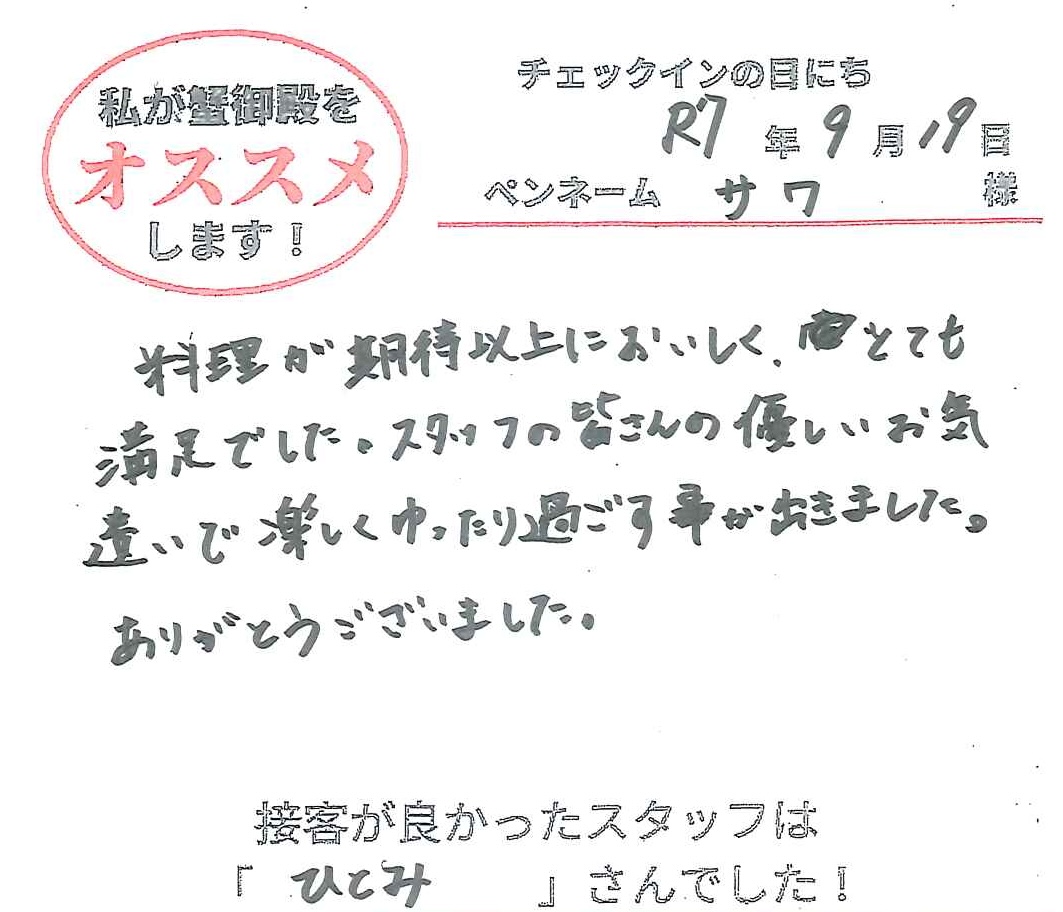 私が蟹御殿を
オススメ
します！
チェックインの日にち
R7年9月19日
ペンネーム サワ 様
料理が期待以上においしく、とても
満足でした。スタッフの皆さんの優しいお気
遣いで楽しくゆったり過ごす事が出きました。
ありがとうございました。
接客が良かったスタッフは
「 ひとみ 」さんでした！